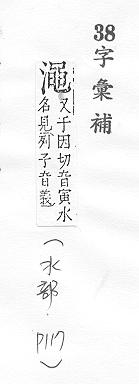 38
字彙補
澠
又于因切音寅水
名見列子音義
(水部 P117)